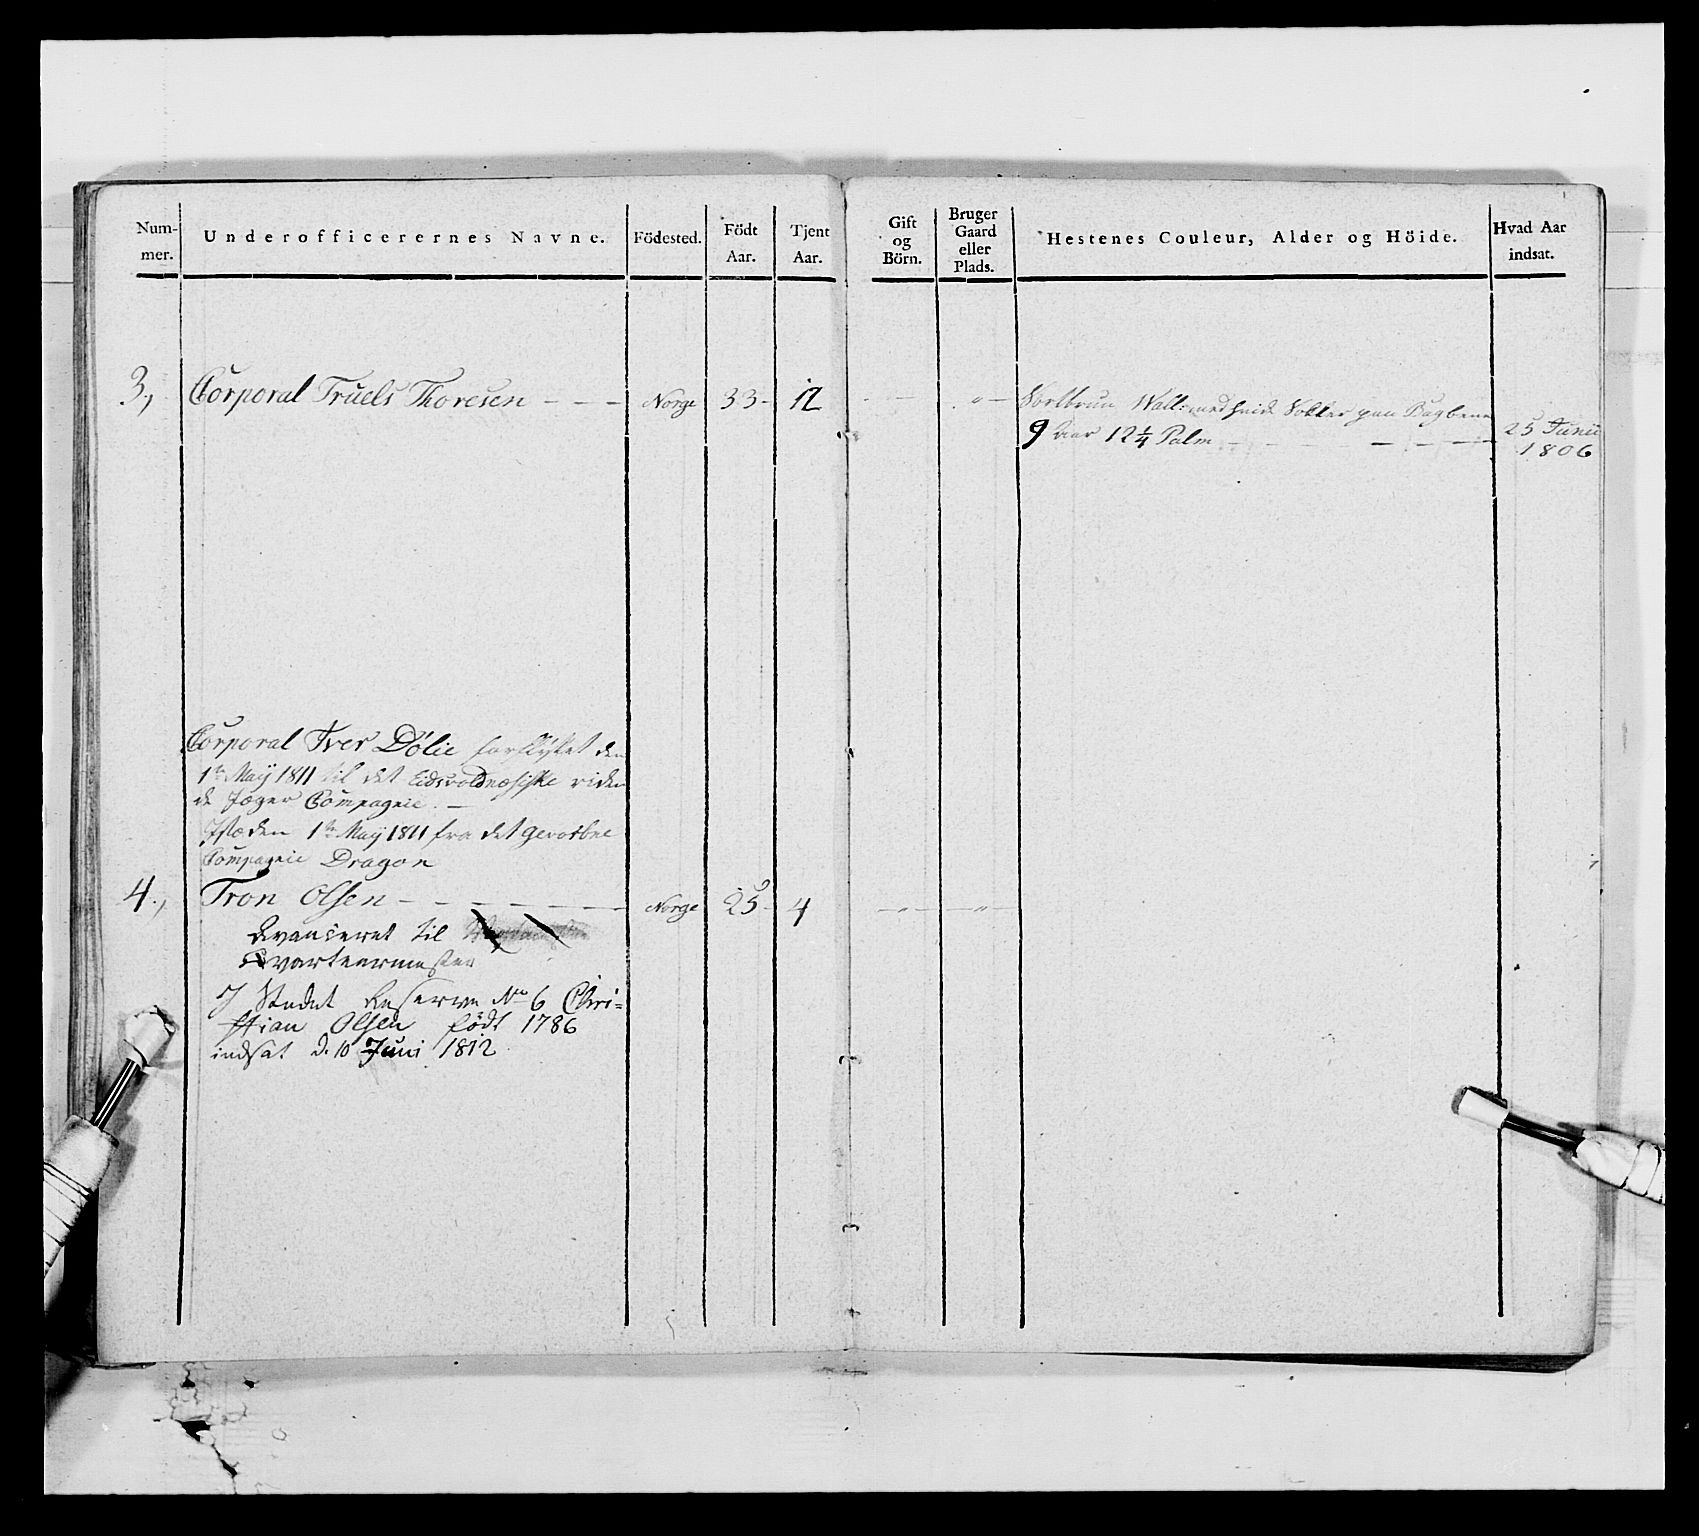 Num-
mer.
Underofficerernes Navne.
Födested.
Födt
Aar.
Tjent
Aar.
Gift
og
Börn.
Bruger
Gaard
eller
Plads.
Hestenes Couleur, Alder og Höide.
Hvad Aar
indsat.
3, Corporal Truels Thoresen - - - Norge 33- 12 - - " - Sortbrun Wall: med hvide Sokker paa Bagbene
9 Aar 12 1/4 Palm - - - - - - 25 Junii
1806
Corporal Iver Dölie forflyttet den
1te Maij 1811 til det Eidsvoldnæsiske riden
de Jæger Compagnie. -
Isteden 1te Maij 1811 fra det gevorbne
Compagnie Dragon
4., Tron Olsen - - - - - - Norge 25- 4 - " - - " -
Avanceret til
Qvarteermester
I Stedet Reserve No 6 Chri=
stian Olsen födt 1786
indsat d. 10 Juni 1812